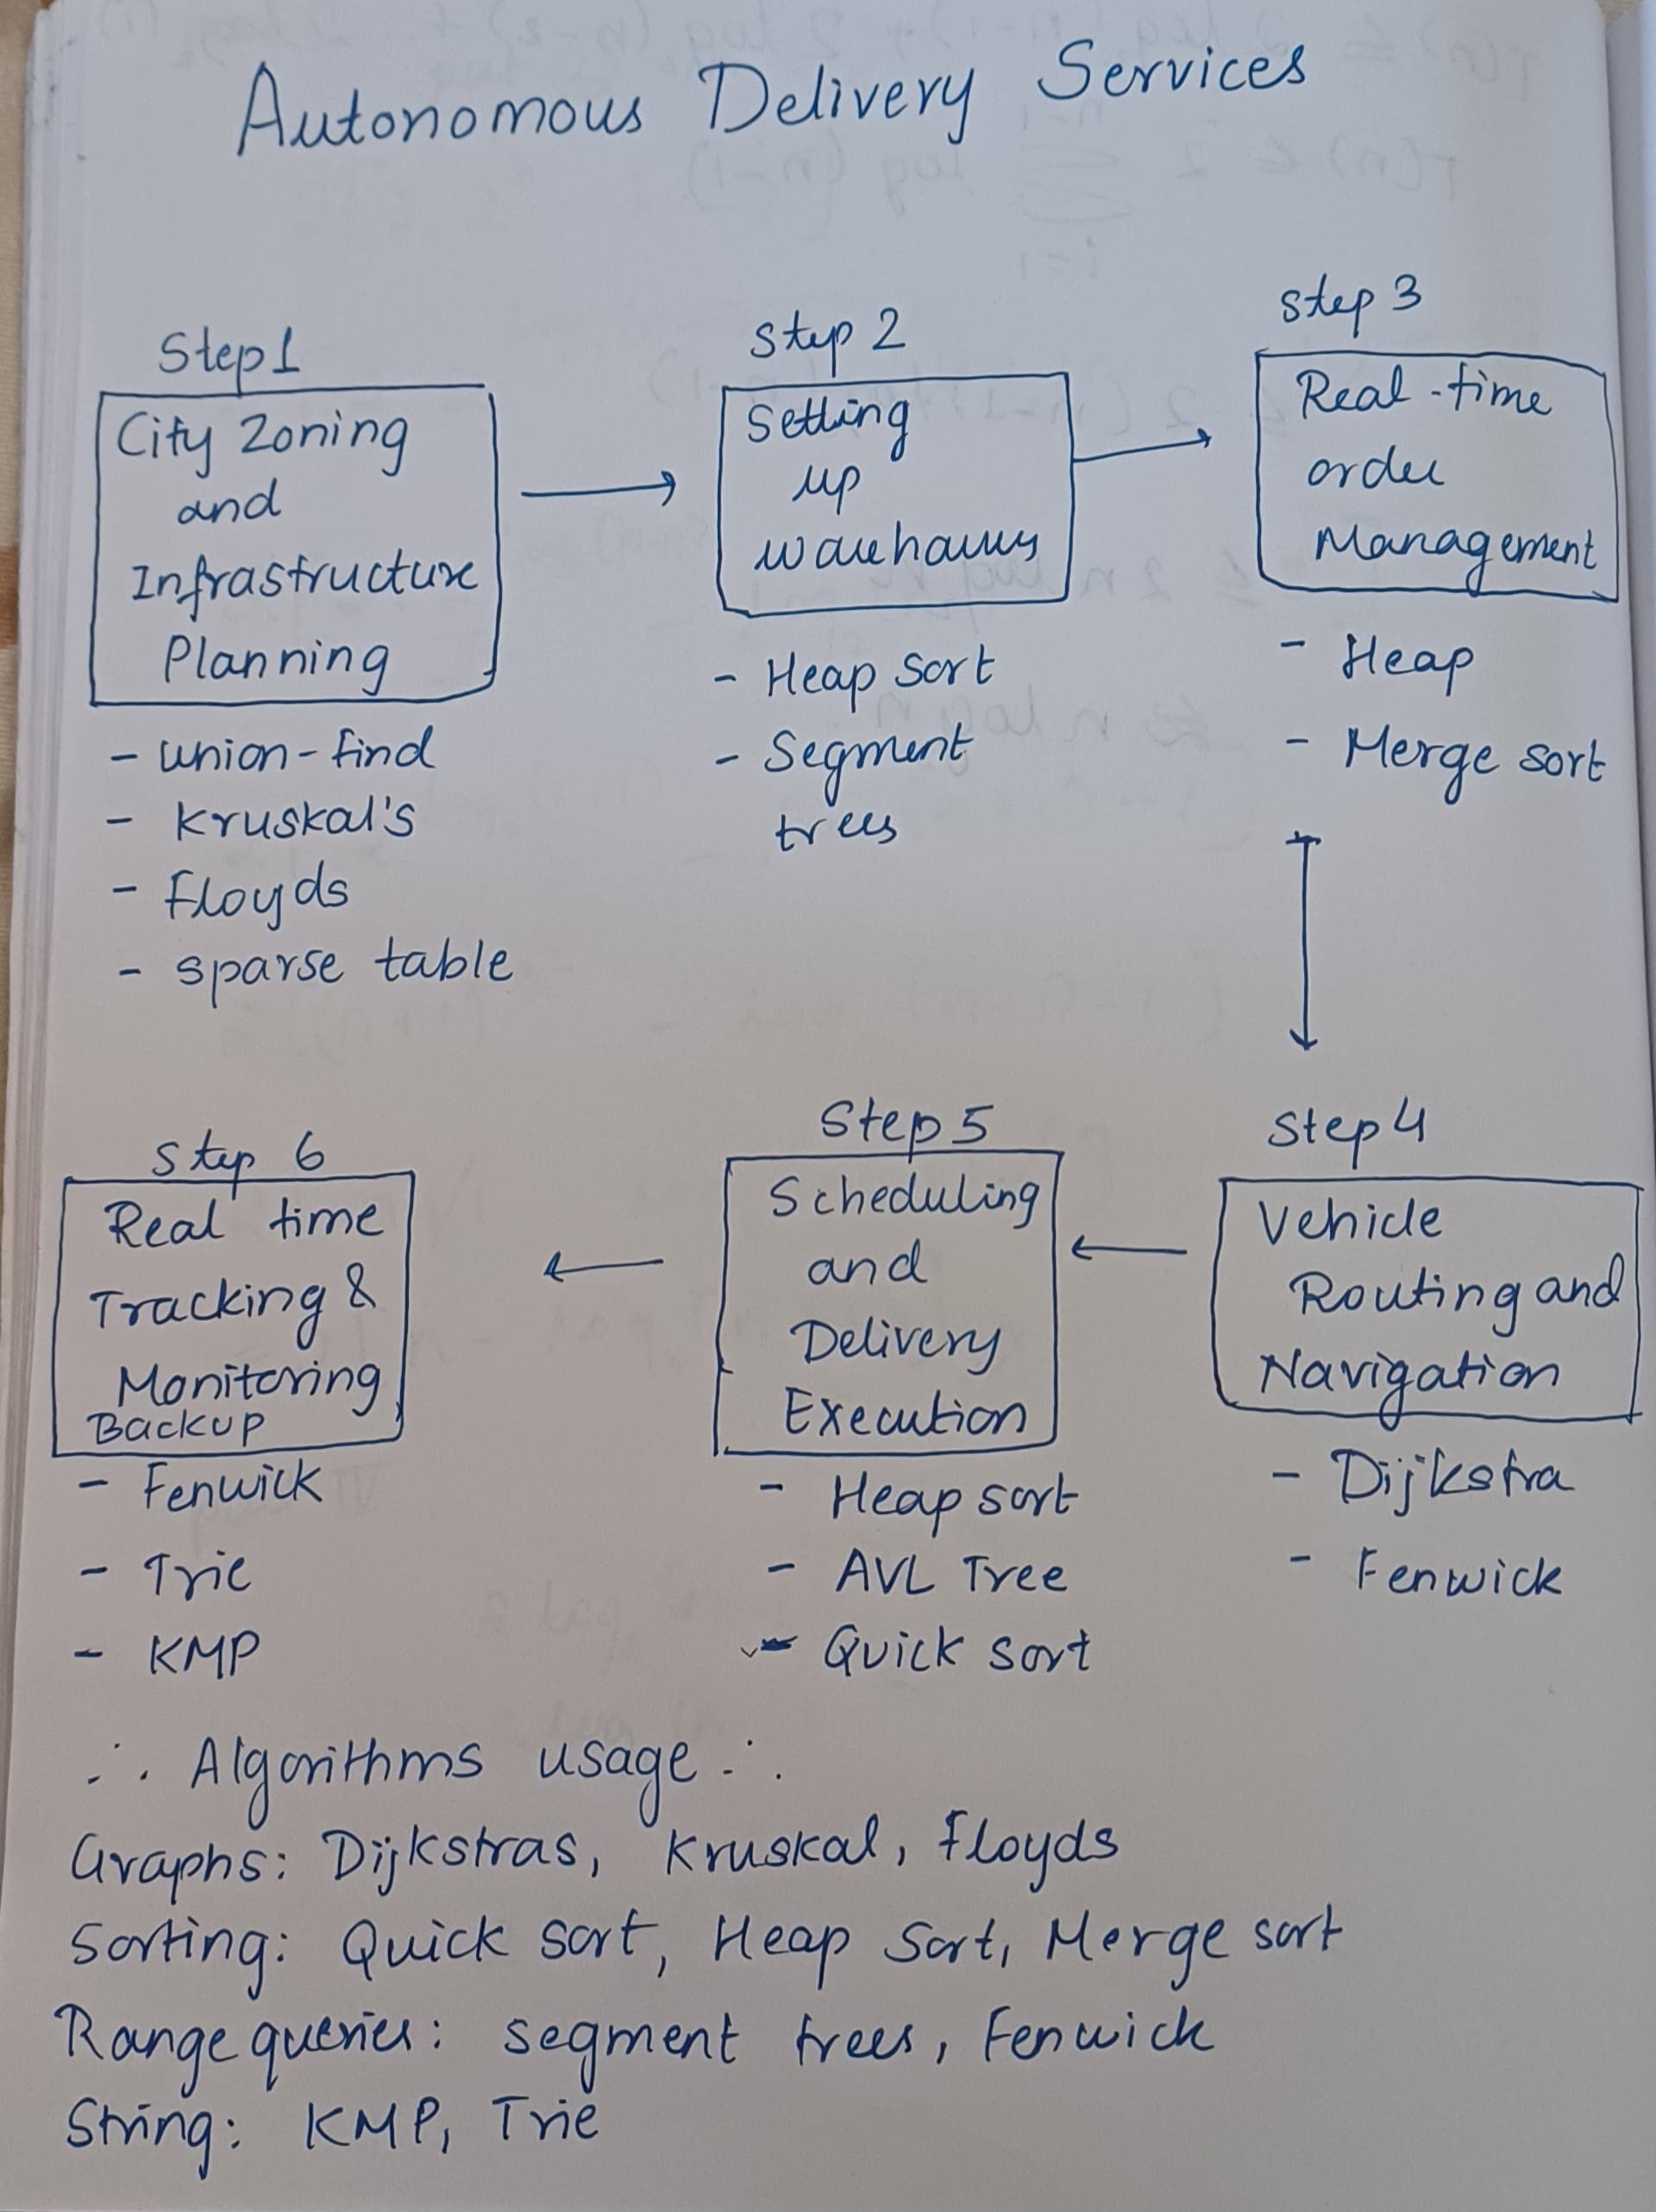 Autonomous Delivery Services
Step 1
City Zoning
and
Infrastructure
Planning
- union-find
- Kruskal's
- Floyds
- sparse table
Step 2
Setting
up
warehouses
- Heap sort
- Segment
trees
Step 3
Real-time
order
Management
- Heap
- Merge sort
Step 4
Vehicle
Routing and
Navigation
- Dijkstra
- Fenwick
Step 5
Scheduling
and
Delivery
Execution
- Heap sort
- AVL Tree
- Quick sort
Step 6
Real time
Tracking &
Monitoring
Backup
- Fenwick
- Trie
- KMP
∴ Algorithms usage ∴
Graphs: Dijkstras, Kruskal, Floyds
Sorting: Quick sort, Heap Sort, Merge sort
Range queries: segment trees, Fenwick
String: KMP, Trie